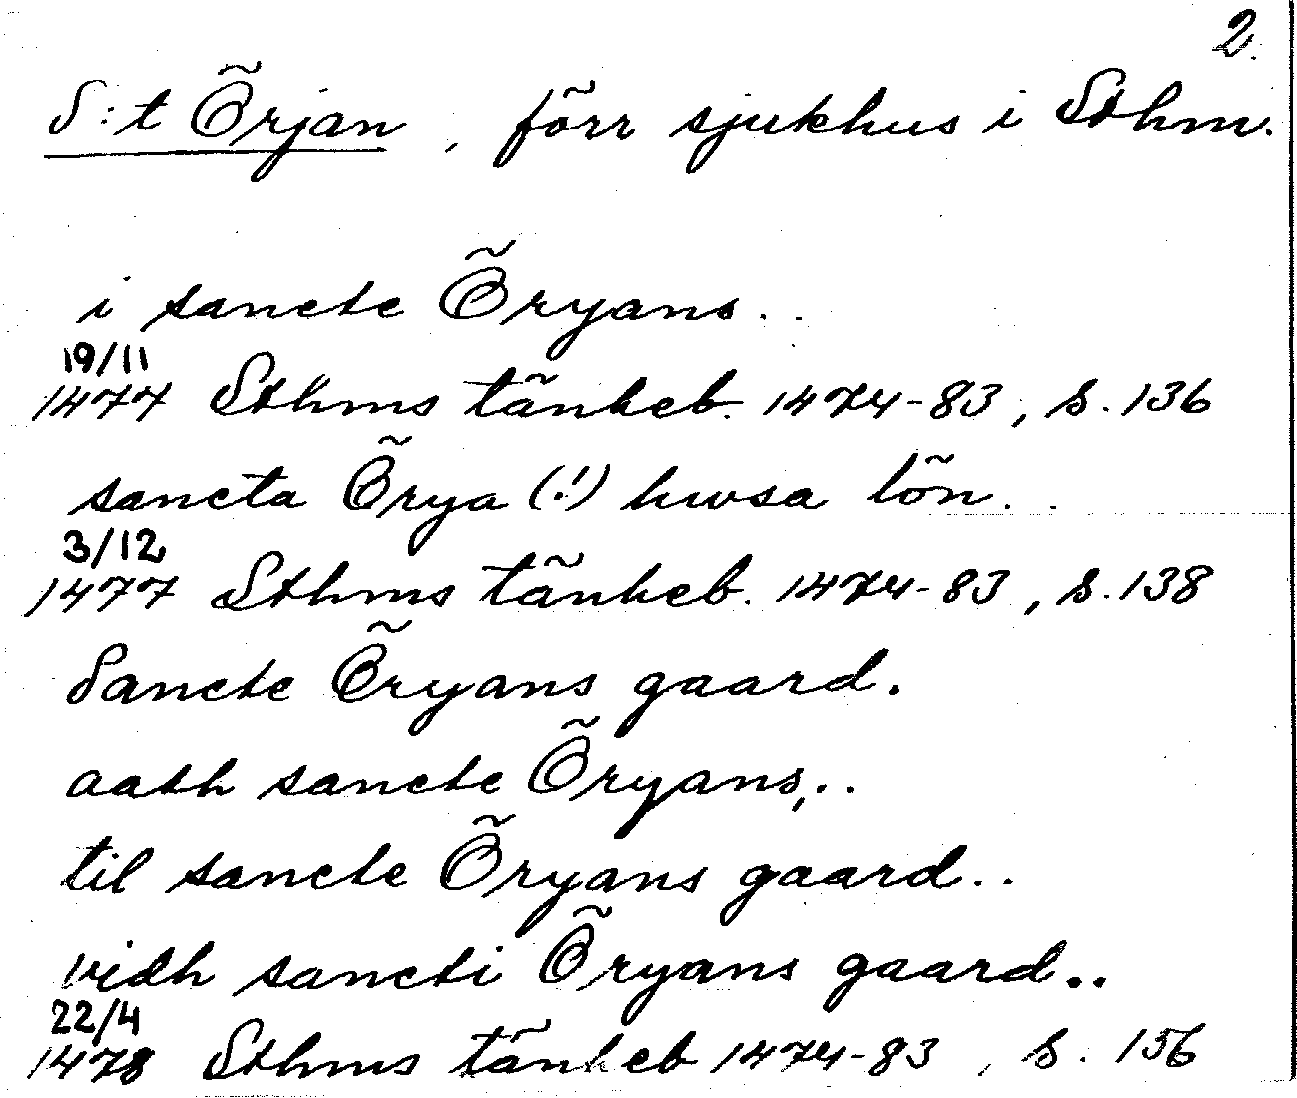 2.
S:t Örjan, förr sjukhus i Sthm.
i sancte Öryans..
19/11
1477 Sthms tänkeb. 1474-83, s. 136
sancta Örya (!) hwsa lön..
3/12
1477 Sthms tänkeb. 1474-83, s. 138
Sancte Öryans gaard.
aath sancte Öryans,..
til sancte Öryans gaard..
vidh sancti Öryans gaard..
22/4
1478 Sthms tänkeb 1474-83, s. 156